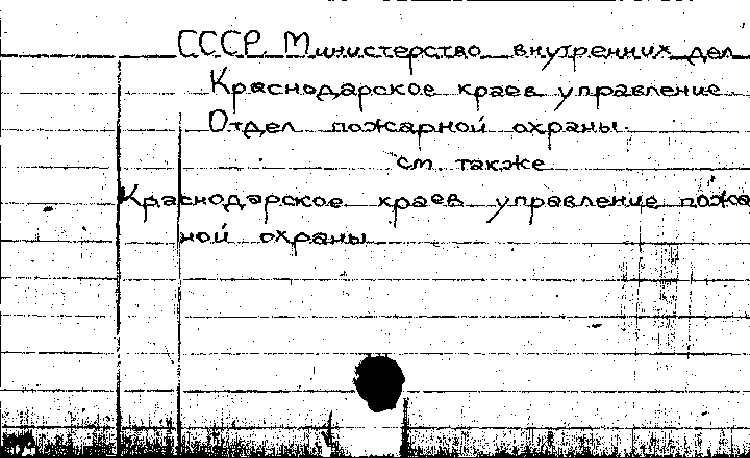 СССР. Министерство внутренних дел
Краснодарское краев управление
Отдел пожарной охраны.
см. также
Краснодарское краев управление пожа
ной охраны